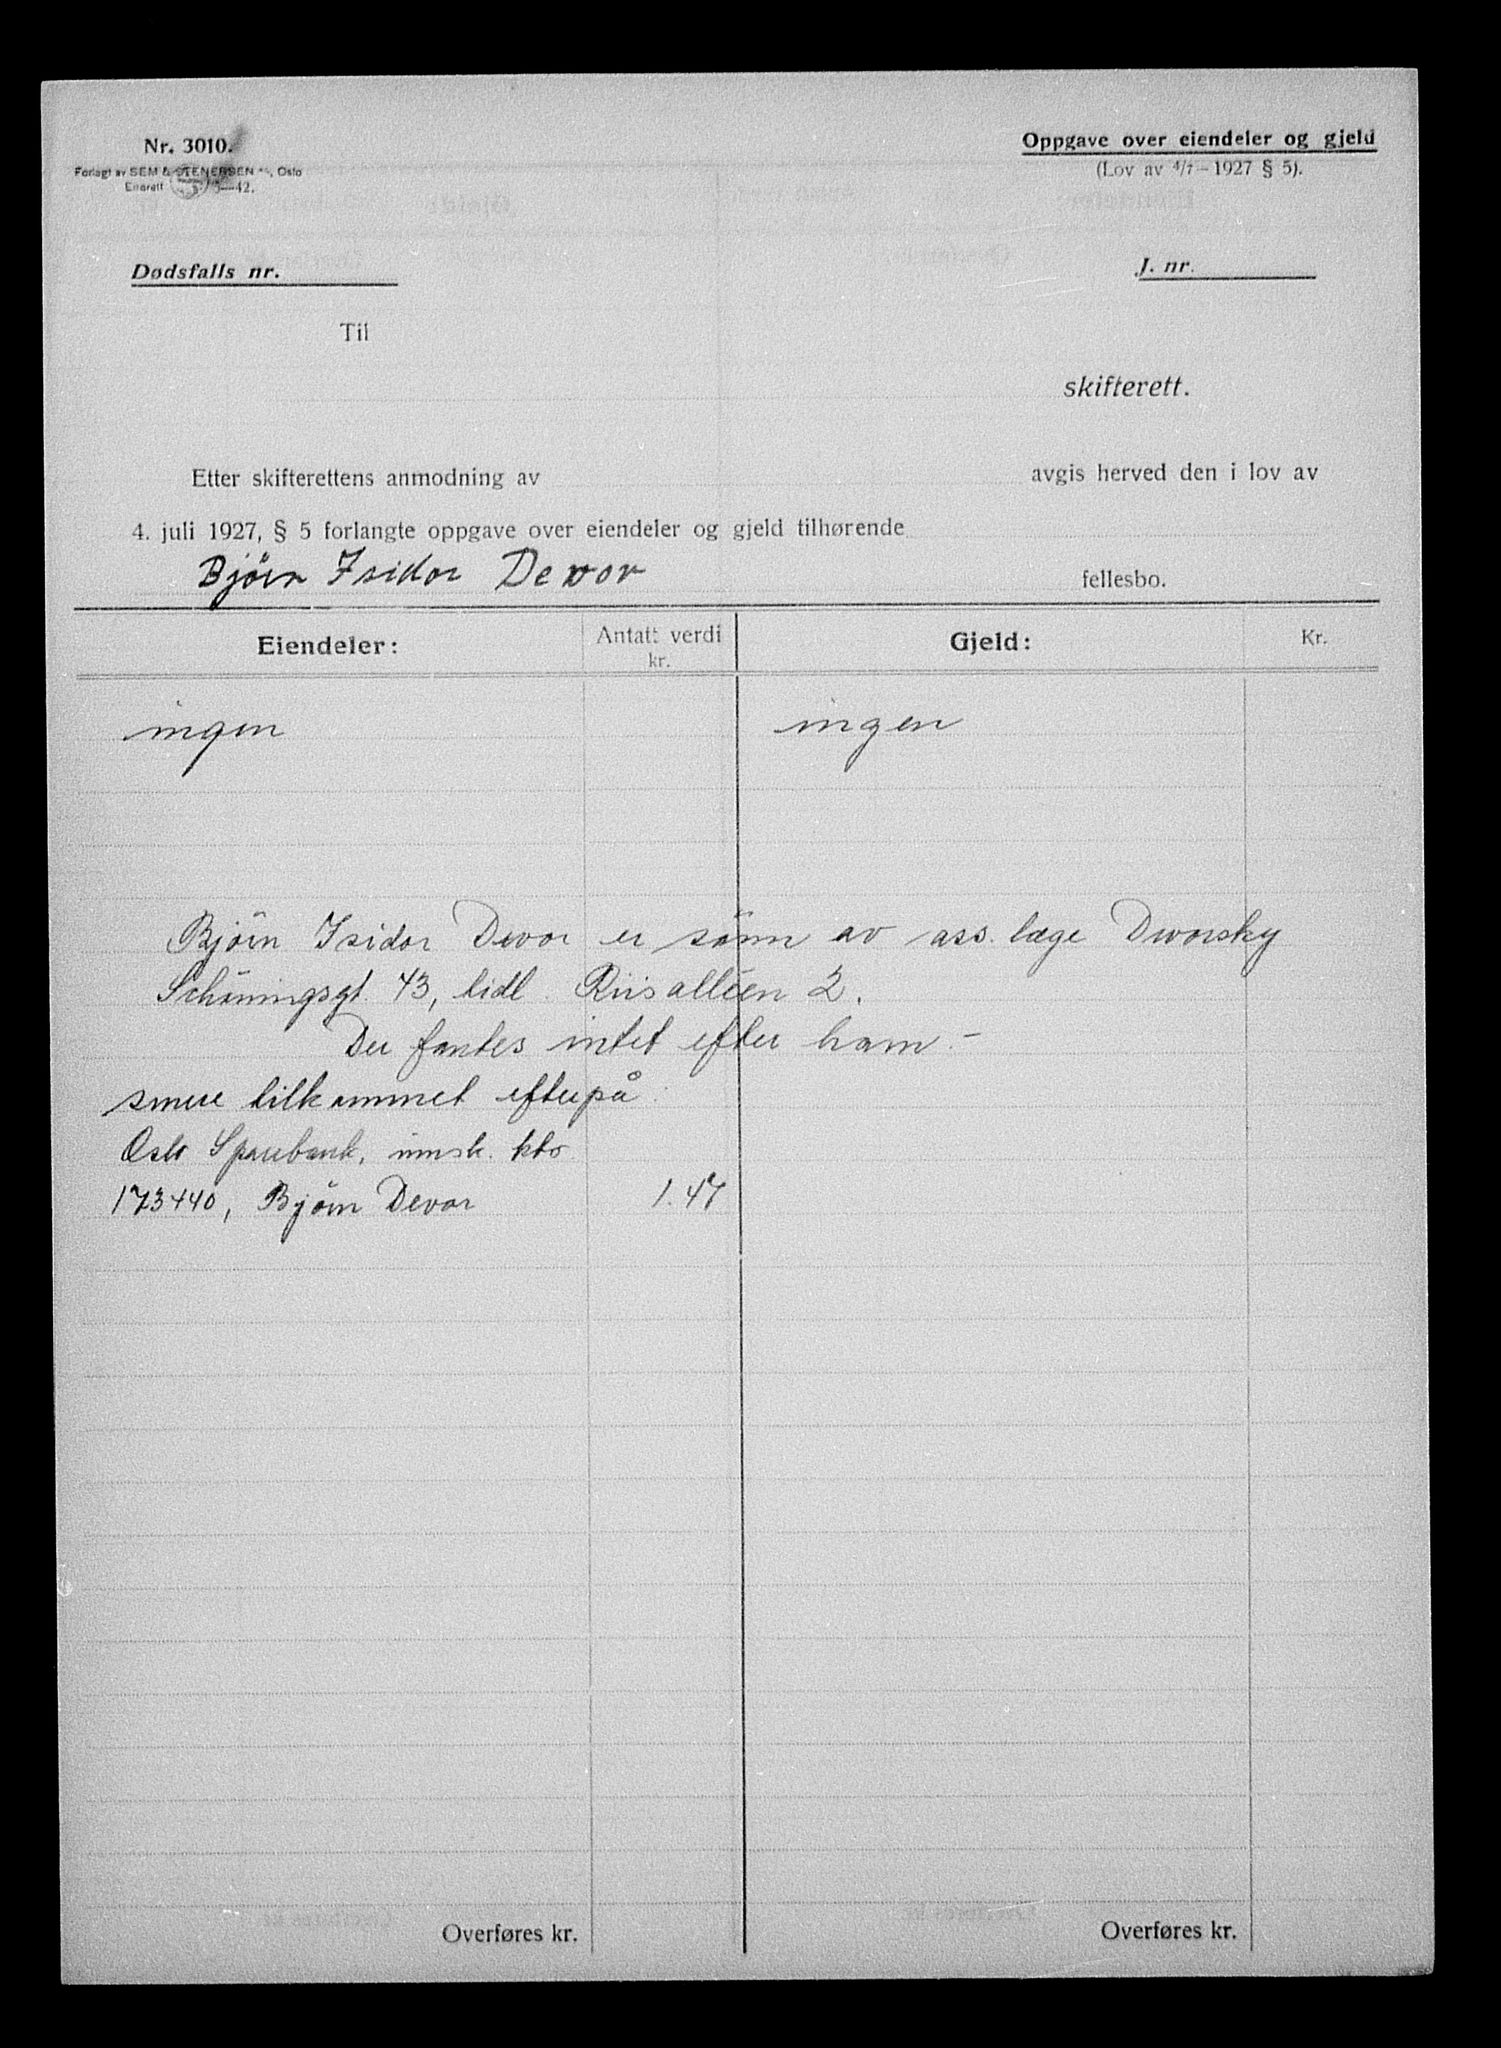 Nr. 3010.
Forlagt av SEM & STENERSEN A/S, Oslo
Enerett 42.
Oppgave over eiendeler og gjeld
(Lov av 4/7 – 1927 § 5).
Dødsfalls nr.
J. nr.
Til
skifterett.
Etter skifterettens anmodning av avgis herved den i lov av
4. juli 1927, § 5 forlangte oppgave over eiendeler og gjeld tilhørende
Bjørn Isidor Devor fellesbo.
Eiendeler: Antatt verdi kr. Gjeld: Kr.
ingen ingen
Bjørn Isidor Devor er sönn av ass. læge Dworsky
Schöningsgt. 43, tidl. Riisalléen 2.
Der fantes intet efter ham. –
senere tilkommet efterpå.
Oslo Sparebank, innsk. kto
173440, Björn Devor 1.47
Overføres kr. Overføres kr.